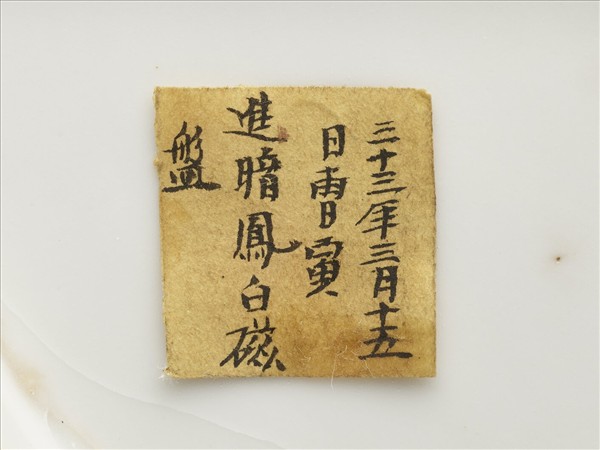 三十三年三月十五
日曹寅
進暗鳳白磁
盤